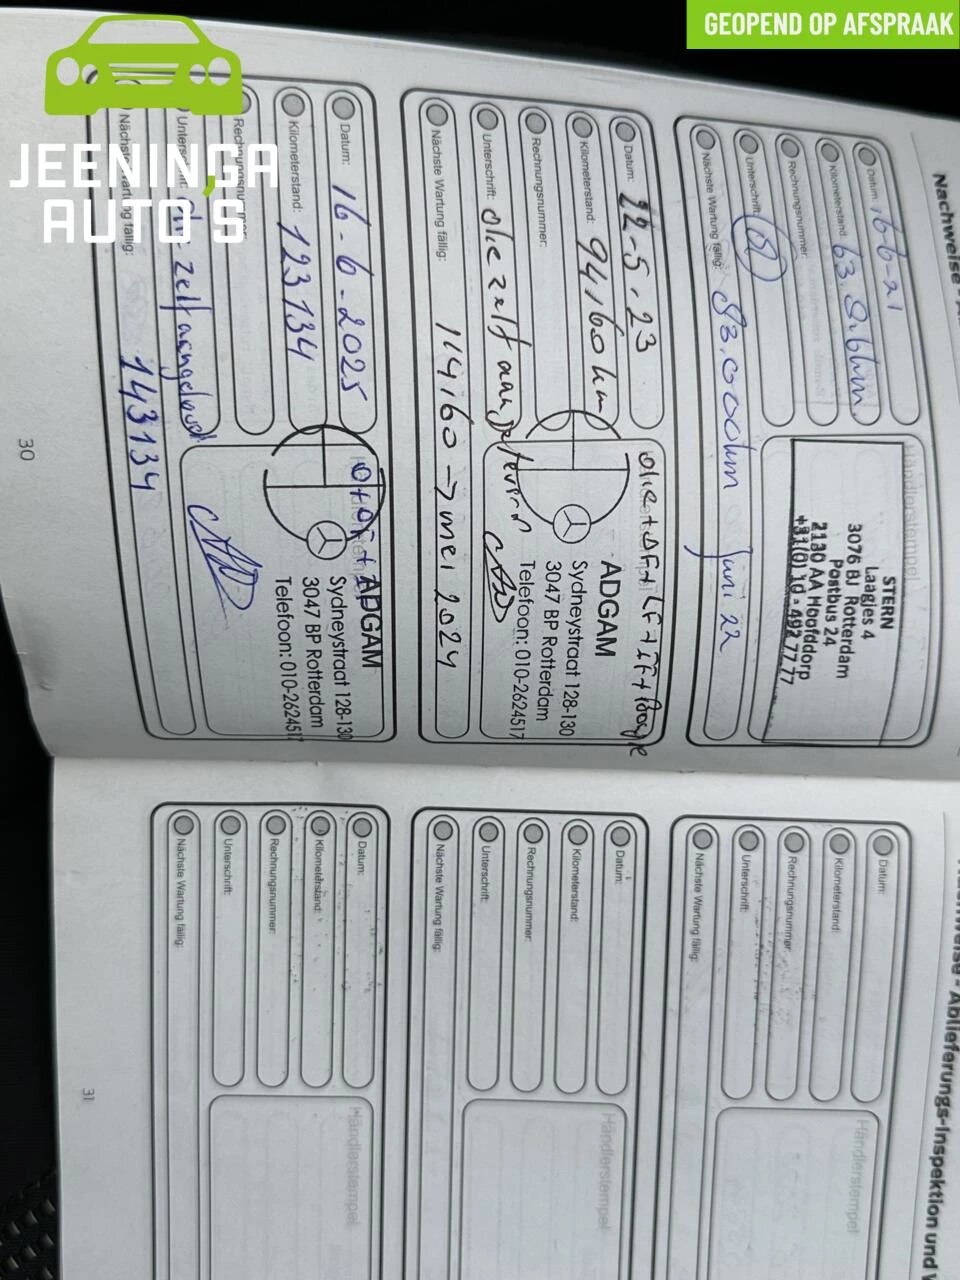 GEOPEND OP AFSPRAAK
JEENINGA
AUTO'S
Datum: 16-6-21
Kilometerstand: 63.816km
Rechnungsnummer:
Unterschrift:
Nächste Wartung fällig: 93.000km Juni 22
Händlerstempel
STERN
Laagjes 4
3076 BJ Rotterdam
Postbus 24
2130 AA Hoofddorp
+31(0)10-492 77 77
Datum: 22-5-23
Kilometerstand: 94160 km
Rechnungsnummer:
Unterschrift: olie zelf
Nächste Wartung fällig: 114160 → mei 2024
olie + OF + LF + IF +
ADGAM
Sydneystraat 128-130
3047 BP Rotterdam
Telefoon: 010-2624517
Datum: 16-6-2025
Kilometerstand: 123134
Rechnungsnummer:
zelf aangeleverd
Nächste Wartung fällig: 143134
ADGAM
Sydneystraat 128-130
3047 BP Rotterdam
Telefoon: 010-262451
30
Datum:
Kilometerstand:
Rechnungsnummer:
Unterschrift:
Nächste Wartung fällig:
Händlerstempel
Datum:
Kilometerstand:
Rechnungsnummer:
Unterschrift:
Nächste Wartung fällig:
Händlerstempel
Datum:
Kilometerstand:
Rechnungsnummer:
Unterschrift:
Nächste Wartung fällig:
Händlerstempel
31